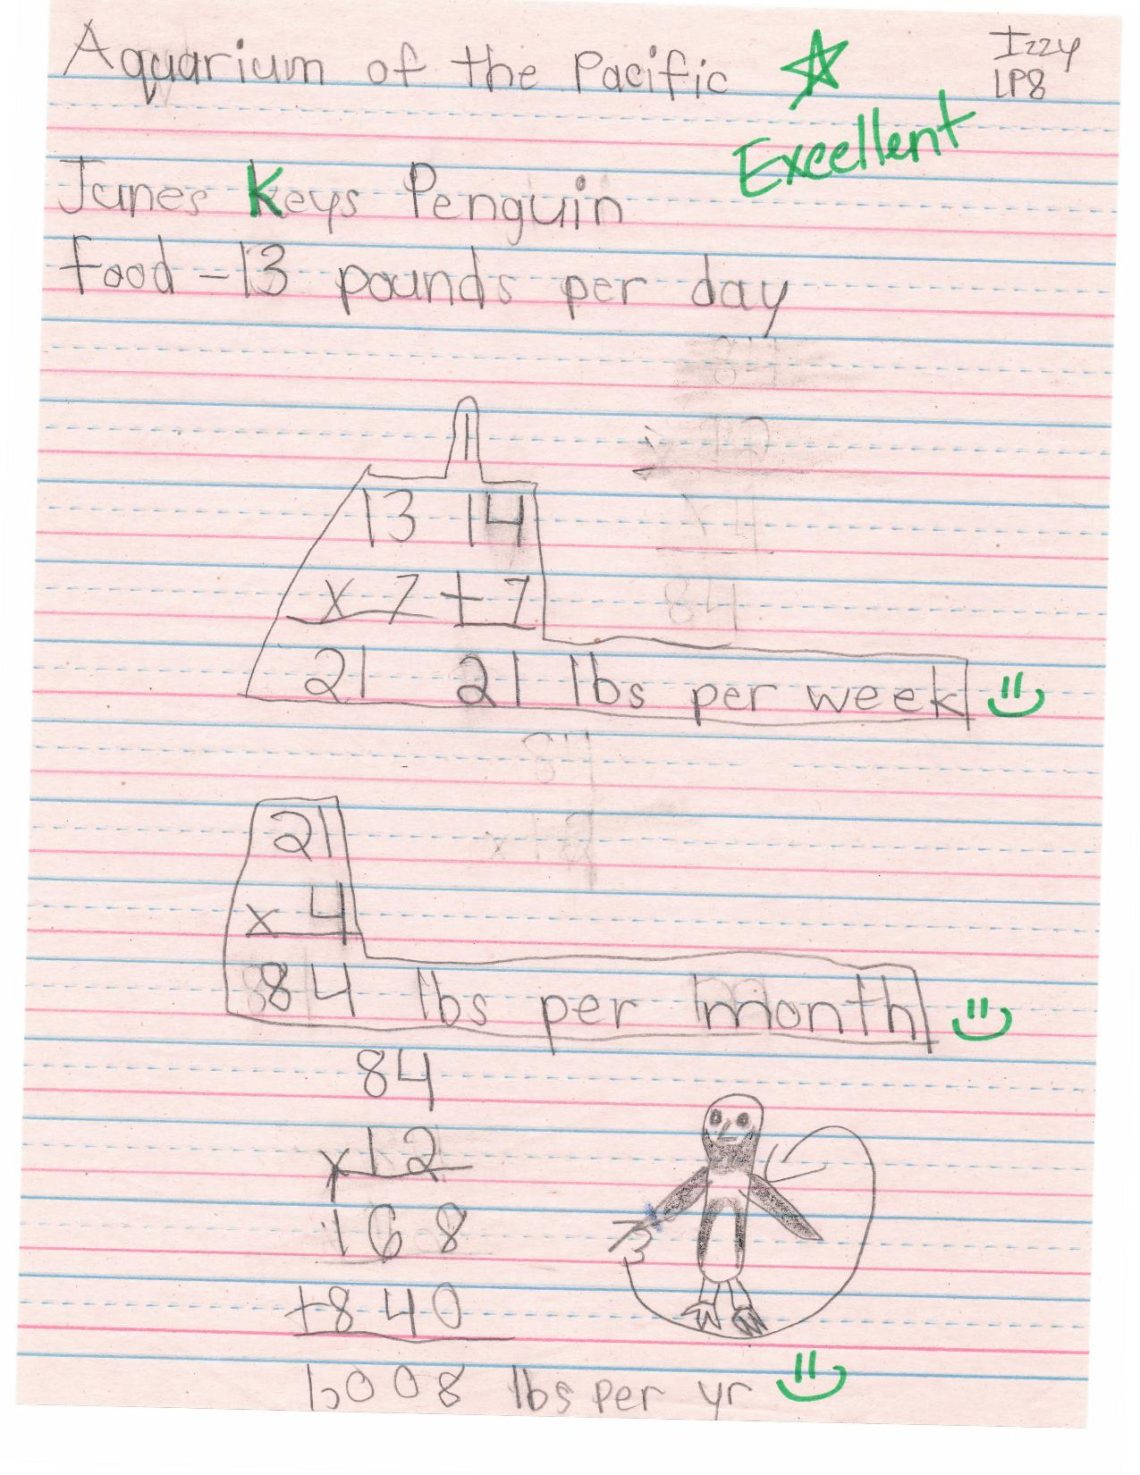 Aquarium of the Pacific
Izzy
LP8
Excellent
Junes Keys Penguin
food - 13 pounds per day
1
13 14
x 7 + 7
21 21 lbs per week
21
x 4
84 lbs per month
84
x 12
168
+ 840
1,008 lbs per yr